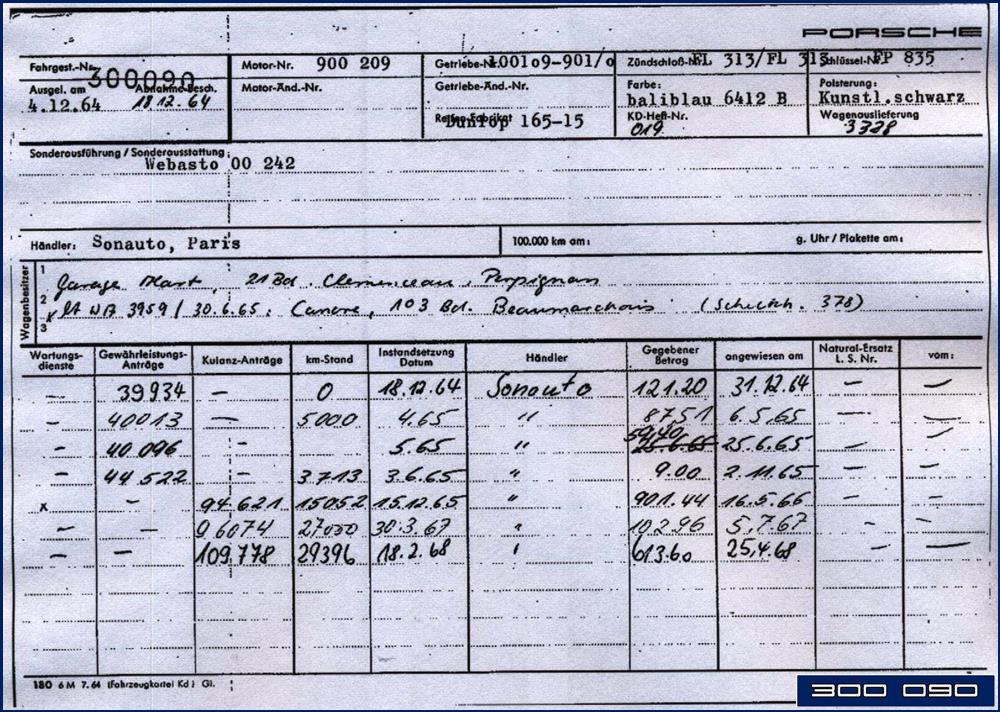 PORSCHE
Fahrgest.-Nr. 300090
Motor-Nr. 900 209
Getriebe-Nr. 100109-901/0
Zündschloß-Nr. FL 313/FL 313
Schlüssel-Nr. FP 835
Ausgel. am 4.12.64
Abnahme-Besch. 18 12. 64
Motor-Änd.-Nr.
Getriebe-Änd.-Nr.
Farbe: baliblau 6412 B
Polsterung: Kunstl.schwarz
Reifen-Fabrikat Dunlop 165-15
KD-Heft-Nr. 019
Wagenauslieferung 3328
Sonderausführung / Sonderausstattung:
Webasto 00 242
Händler: Sonauto, Paris
100.000 km am:
g. Uhr / Plakette am:
Wagenbesitzer
1 Garage 21 Bd. Clemenceau, Perpignan
2 lt WA 3959 / 30.6.65: 103 Bd. Beaumarchais 378)
3
Wartungs-dienste Gewährleistungs-Anträge Kulanz-Anträge km-Stand Instandsetzung Datum Händler Gegebener Betrag angewiesen am Natural-Ersatz L. S. Nr. vom:
— 39934 — 0 18.12.64 Sonauto 121.20 31.12.64 — —
— 40013 — 5000 4.65 " 87.51 6.5.65 — —
— 40096 - 5.65 " 59,40 25.6.65 25.6.65 — —
— 44522 - 3713 3.6.65 " 9.00 2.11.65 — —
x - 94621 15052 15.12.65 " 901.44 16.5.66 — —
— — 96074 27000 30.3.67 " 102.96 5.7.67 - -
— — 109.778 29396 18.2.68 " 613.60 25,4.68 — —
180 6 M 7. 64 (Fahrzeugkartei Kd) Gl.
300 090